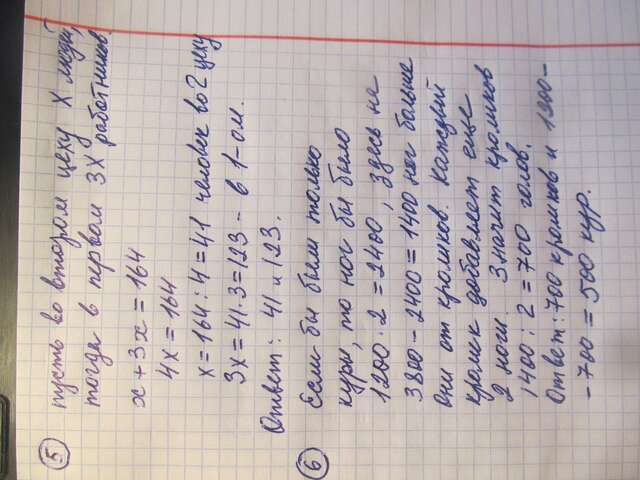 5 пусть во втором цеху x людей,
тогда в первом 3x работников.
x + 3x = 164
4x = 164
x = 164 : 4 = 41 человек во 2 цеху
3x = 41·3 = 123 - в 1-ом.
Ответ: 41 и 123.
6 Если бы были только
куры, то ног бы было
1200·2 = 2400, здесь на
3800 - 2400 = 1400 ног больше
они от кроликов. Каждый
кролик добавляет еще
2 ноги. Значит кроликов
1400 : 2 = 700 голов.
Ответ: 700 кроликов и 1200-
- 700 = 500 кур.